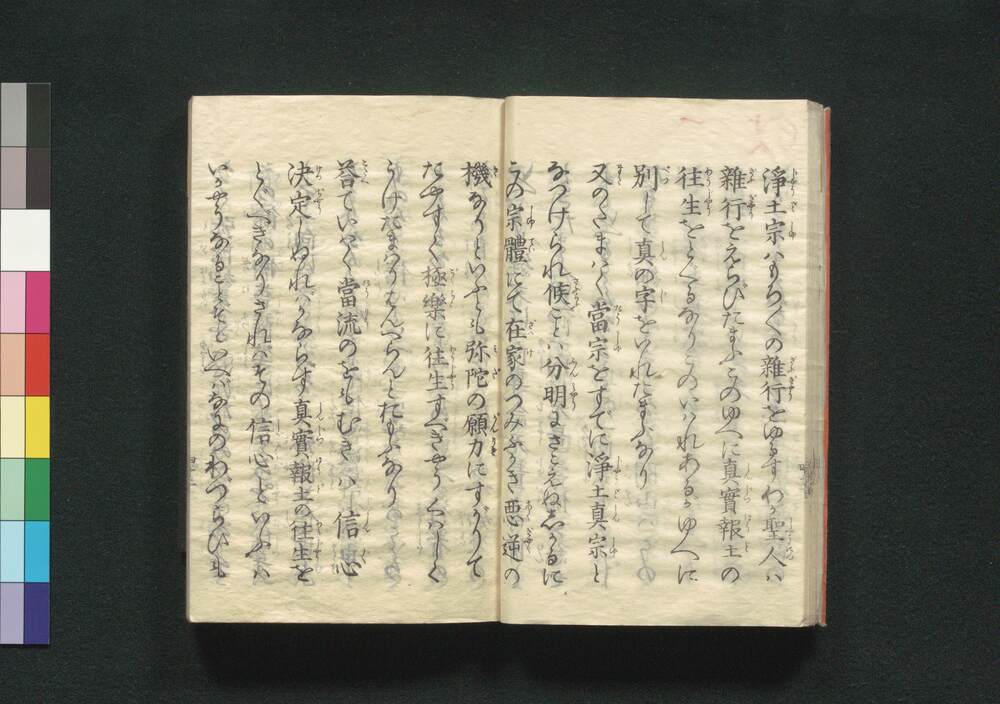 淨土宗ハもろ〳〵の雜行をゆるすわか聖人ハ
雜行をえらびたまふこのゆへに真實報土の
往生をとくるなりこのいはれあるかゆへに
別して真の字をいれたまふなり
又のたまはく當宗をすでに淨土真宗と
なつけられ候ことハ分明にきこえぬしかるに
この宗體にて在家のつみふかき悪逆の
機なりといふとも弥陀の願力にすがりて
たやすく極樂に往生すべきやうくハしく
うけたまはりはんべらんとおもふなり
荅ていはく當流のをもむきハ信心
決定しぬれハかならす真實報土の往生を
とぐべきなりされハその信心といふハ
いかやうなることぞといへばなにのわづらひも